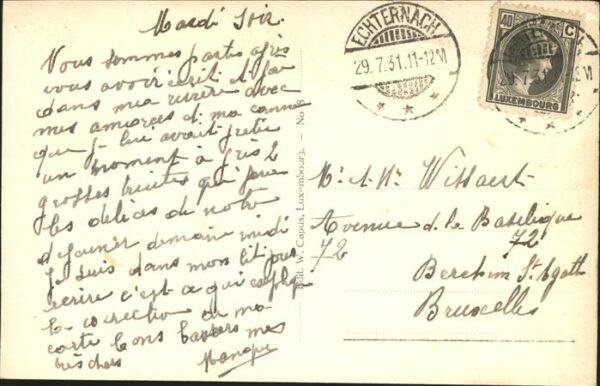 Mardi Soir.
Vous sommes partis après
vous avoir écrit et j'ai
dans ma rivière avec
mes amorces et ma canne
que je lui avait prêtée
un moment à pris 2
grosses truites qui
les délices de notre
dejeuner demain midi
Je suis dans mon lit pour
écrire c'est ce qui explique
la correction de ma
carte bons baisers mes
très chers
ECHTERNACH
29.7.31.11-12 M
40 C
LUXEMBOURG
Edit. W. Capus, Luxembourg. — No
Mr. et Me. Wissaert
Avenue de la Basilique
72 72
Berchem St Agath
Bruxelles